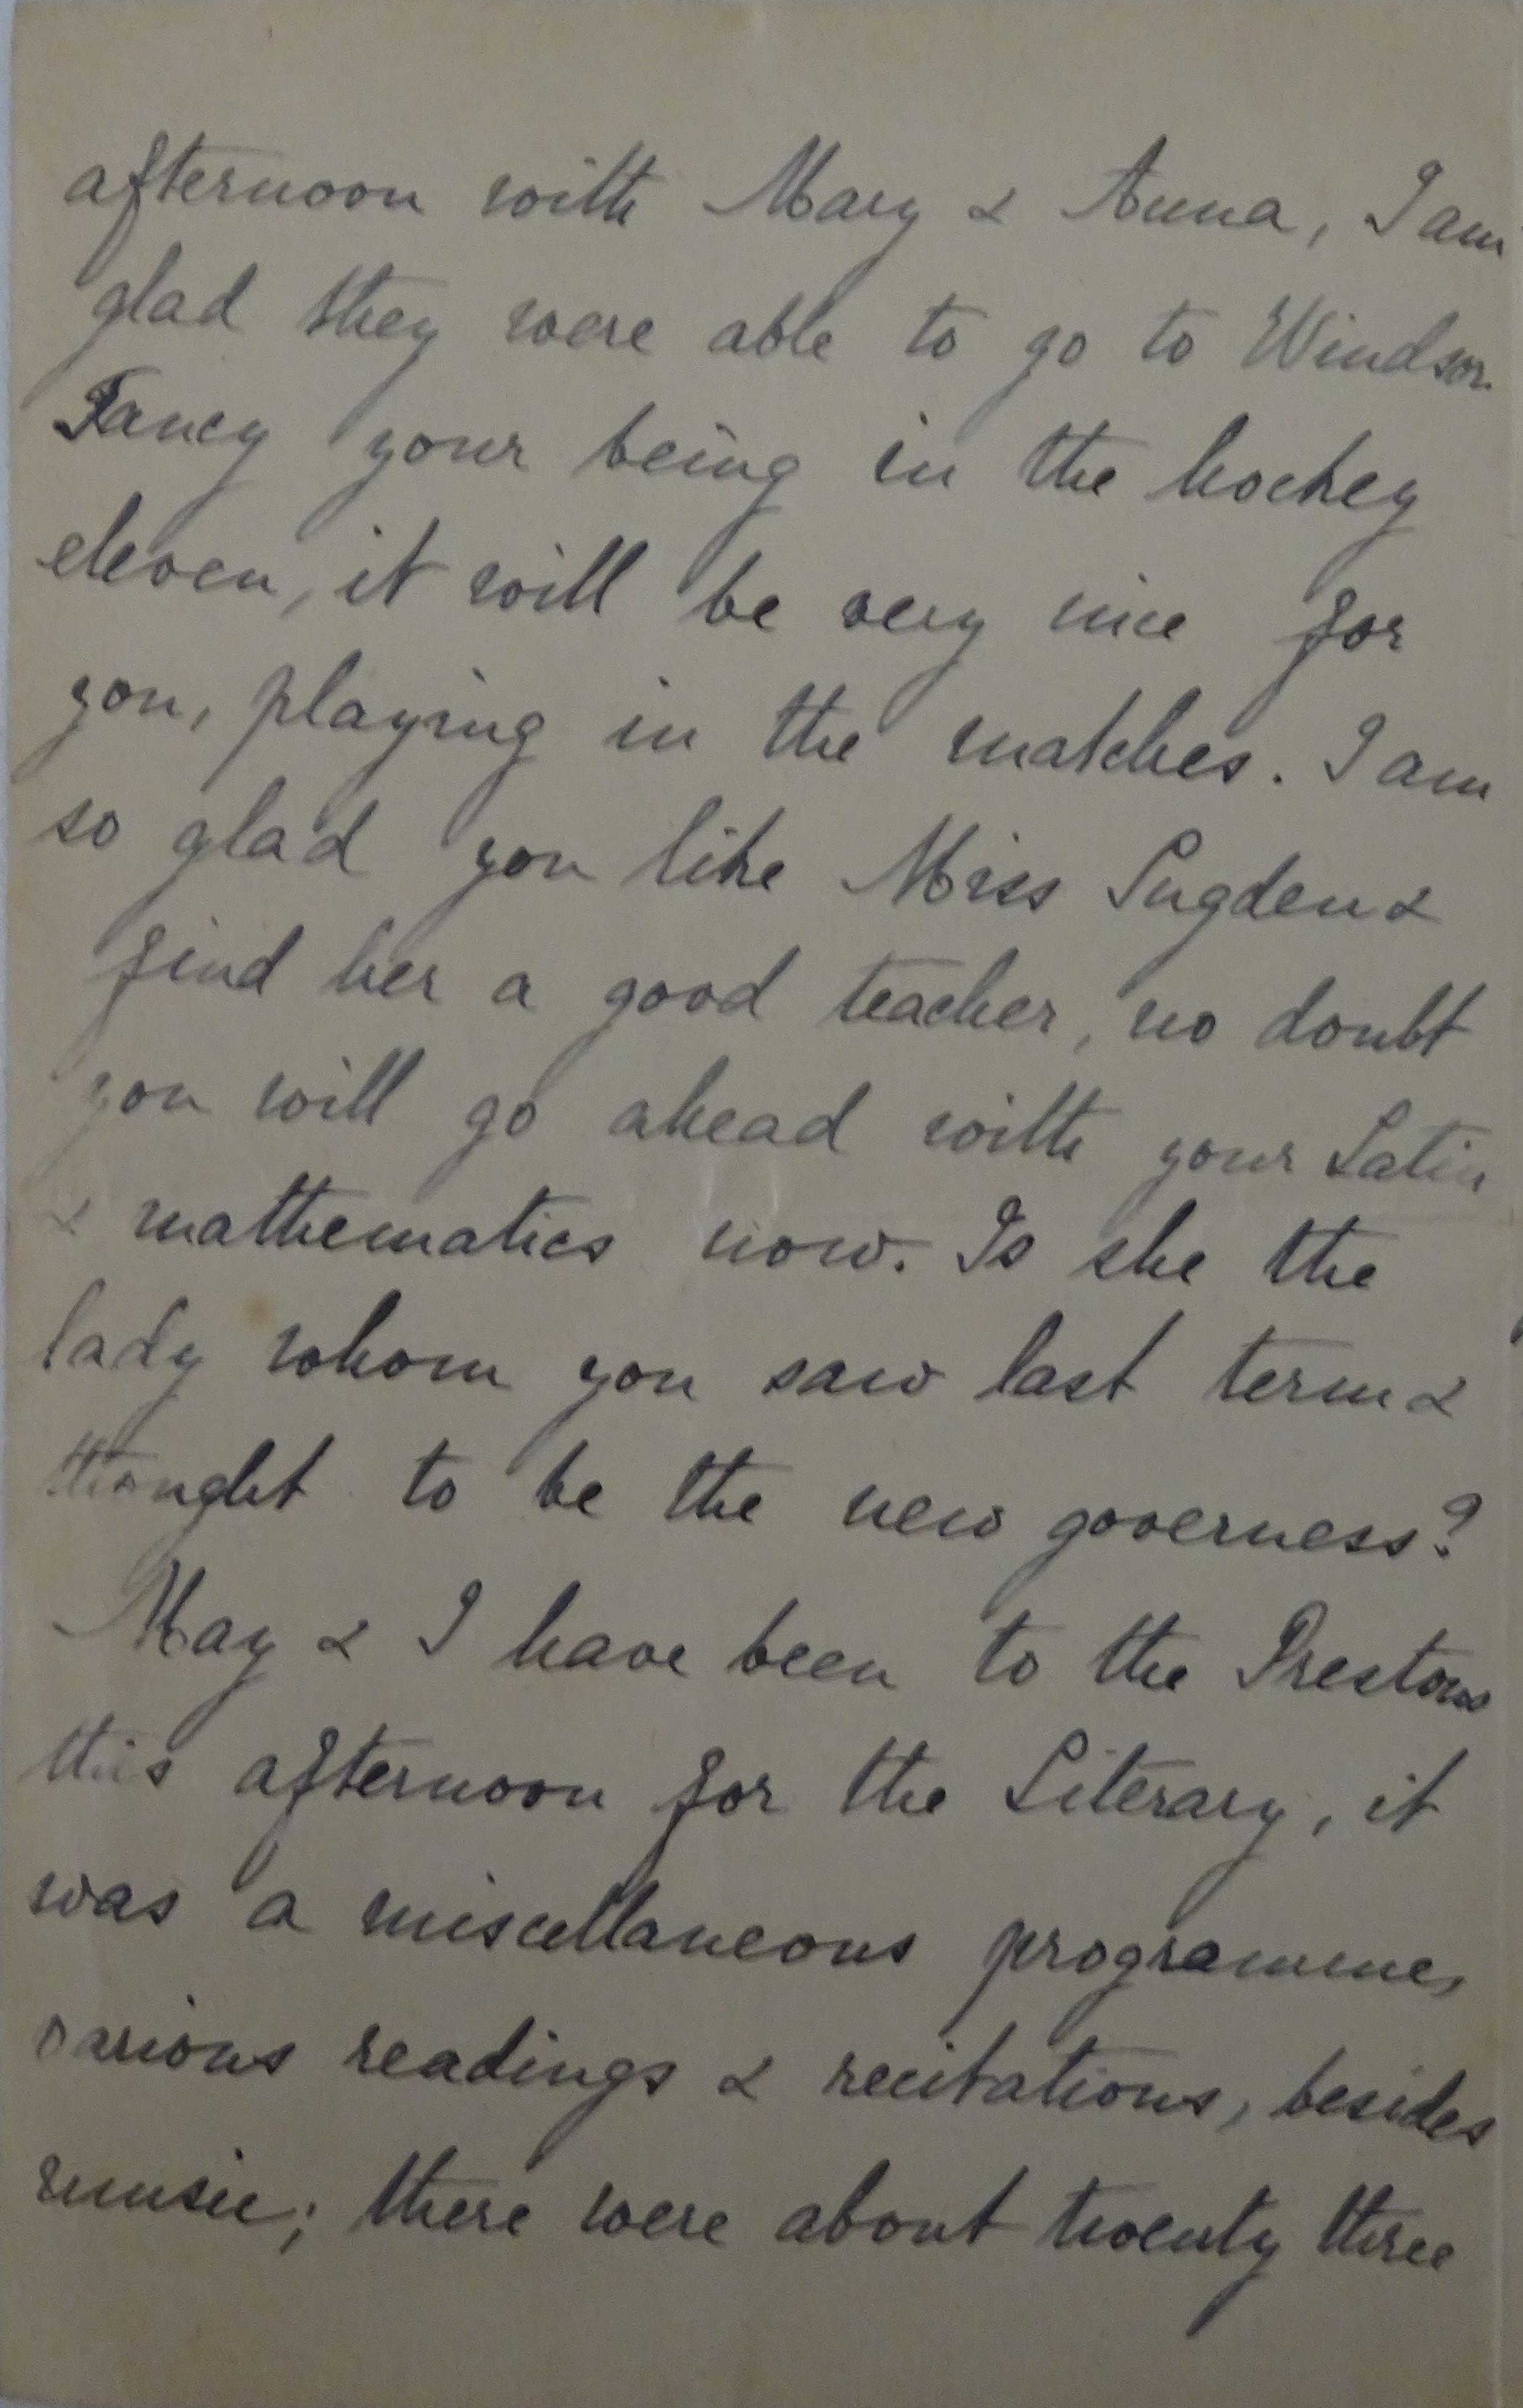 afternoon with Mary & Anna, I am
glad they were able to go to Windsor.
Fancy your being in the hockey
eleven, it will be very nice for
you, playing in the matches. I am
so glad you like Miss Sugden &
find her a good teacher, no doubt
you will go ahead with your Latin
& mathematics now. Is she the
lady whom you saw last term &
thought to be the new governess?
May & I have been to the Prestons
this afternoon for the Literary, it
was a miscellaneous programme,
various readings & recitations, besides
music; there were about twenty three